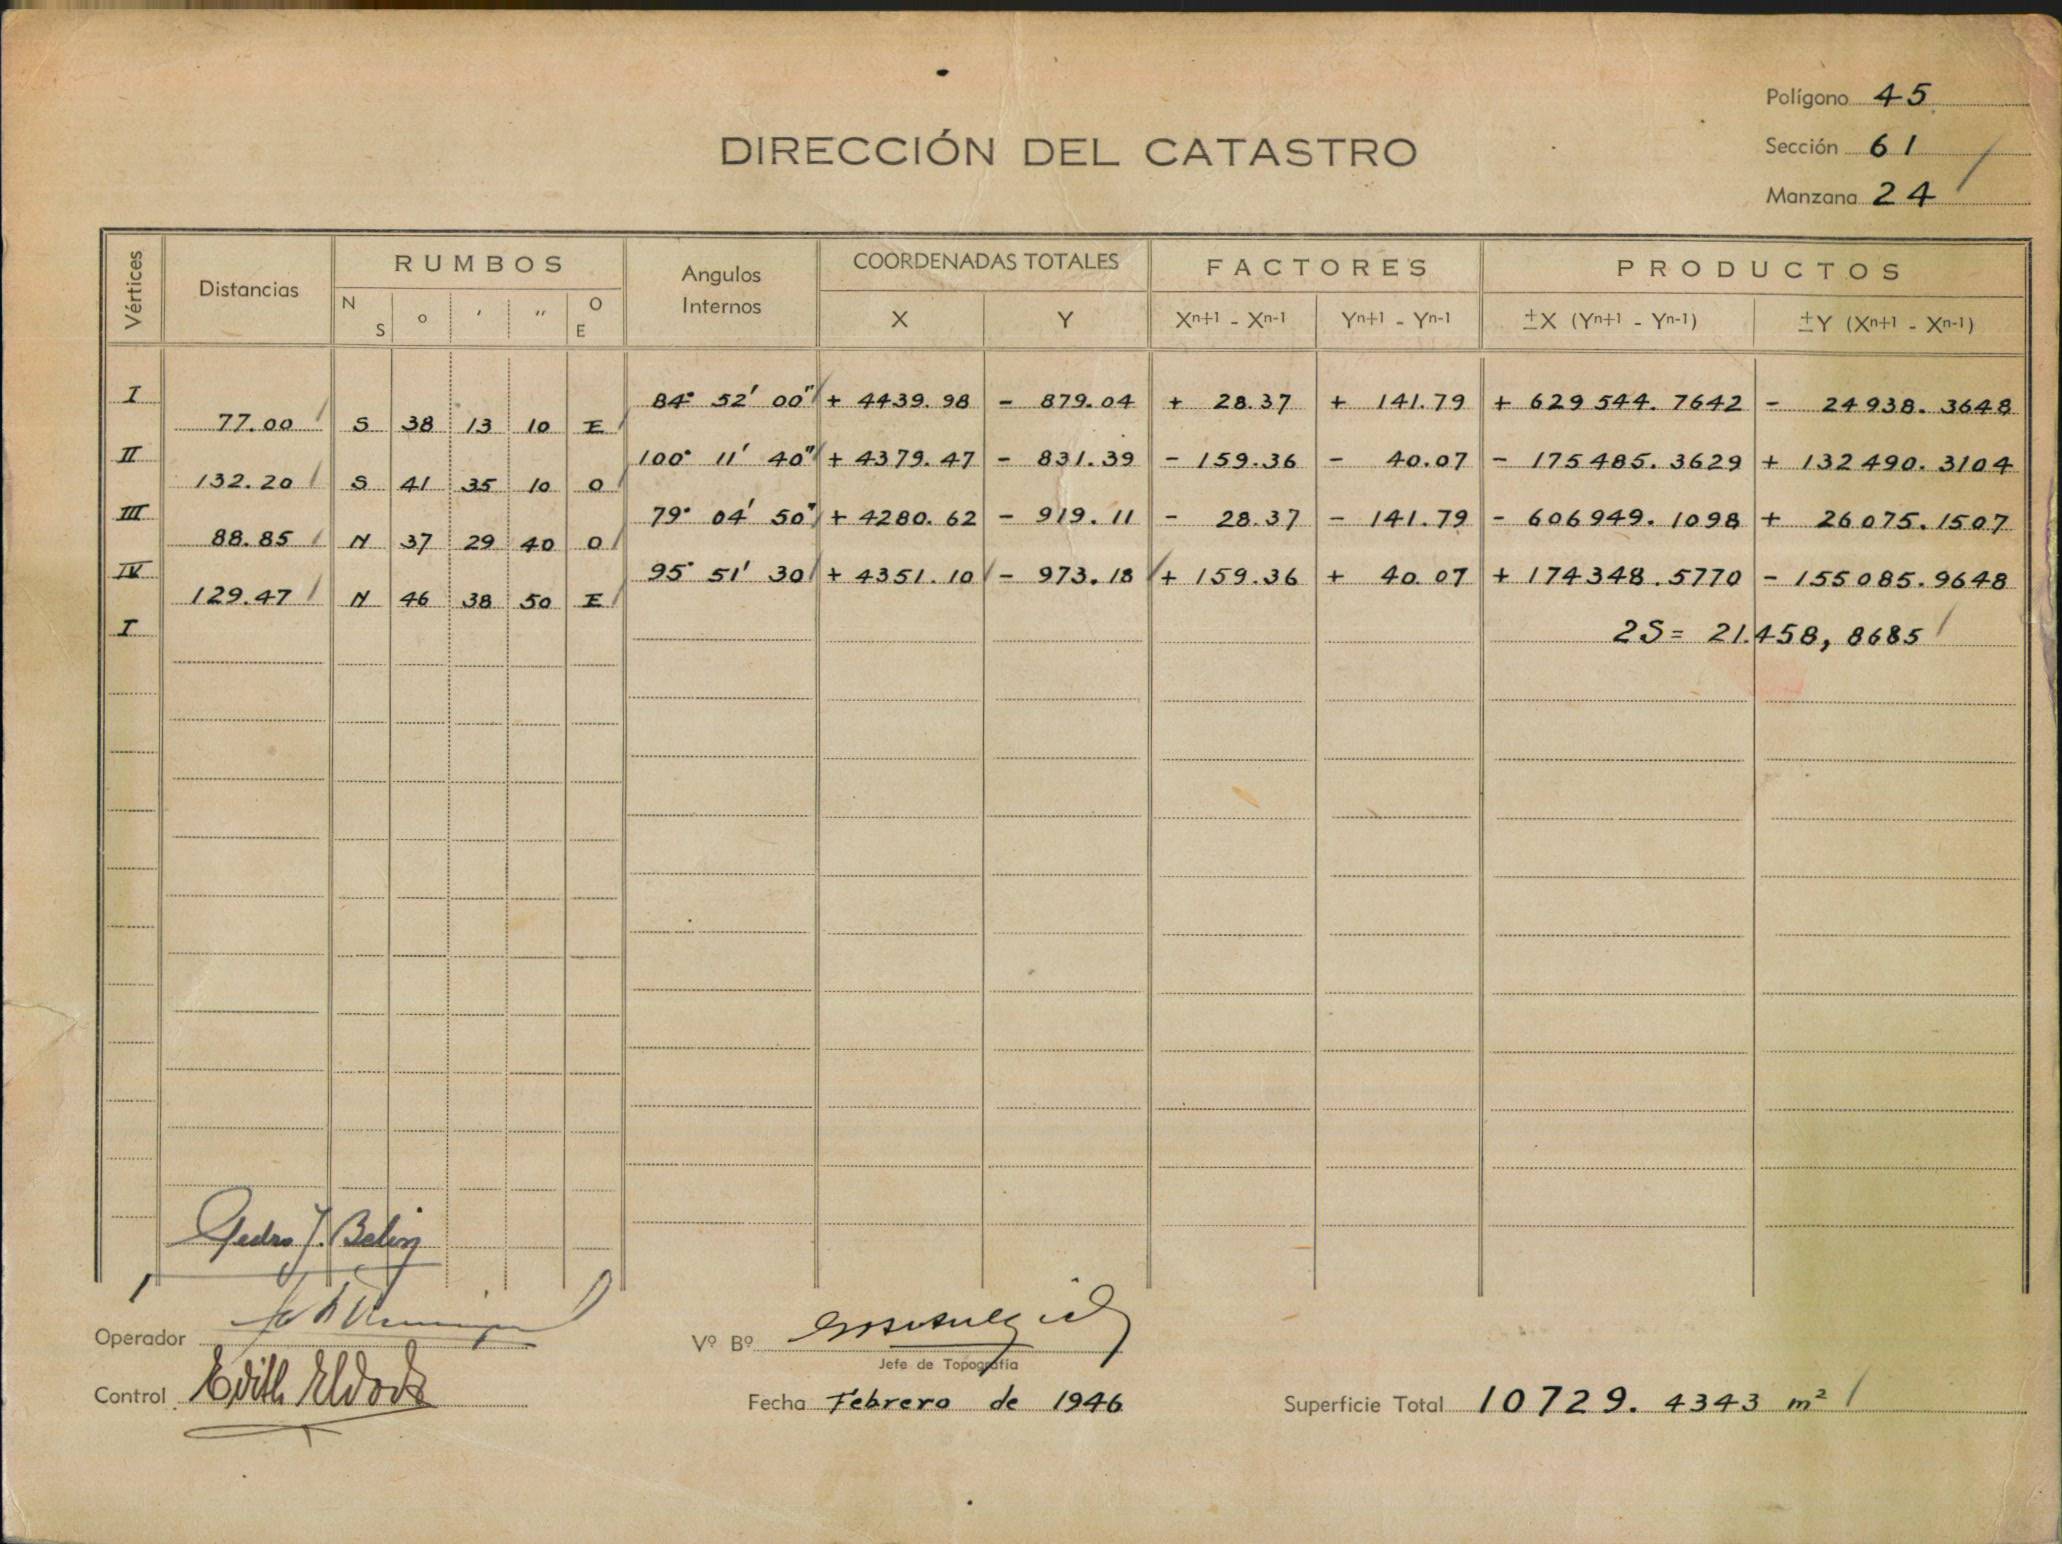 Polígono 45
DIRECCIÓN DEL CATASTRO
Sección 61
Manzana 24
Vértices Distancias RUMBOS Angulos Internos COORDENADAS TOTALES FACTORES PRODUCTOS
N S o ' " O E X Y Xn+1 - Xn-1 Yn+1 - Yn-1 ±X (Yn+1 - Yn-1) ±Y (Xn+1 - Xn-1)
I 84° 52' 00" + 4439.98 - 879.04 + 28.37 + 141.79 + 629544.7642 - 24938.3648
77.00 S 38 13 10 E
II 100° 11' 40" + 4379.47 - 831.39 - 159.36 - 40.07 - 175485.3629 + 132490.3104
132.20 S 41 35 10 O
III 79° 04' 50" + 4280.62 - 919.11 - 28.37 - 141.79 - 606949.1098 + 26075.1507
88.85 N 37 29 40 O
IV 95° 51' 30 + 4351.10 - 973.18 + 159.36 + 40.07 + 174348.5770 - 155085.9648
129.47 N 46 38 50 E
I 2S= 21.458,8685
Pedro J.
Operador
Vº Bº
Jefe de Topografía
Control Edith
Fecha Febrero de 1946
Superficie Total 10729.4343 m²